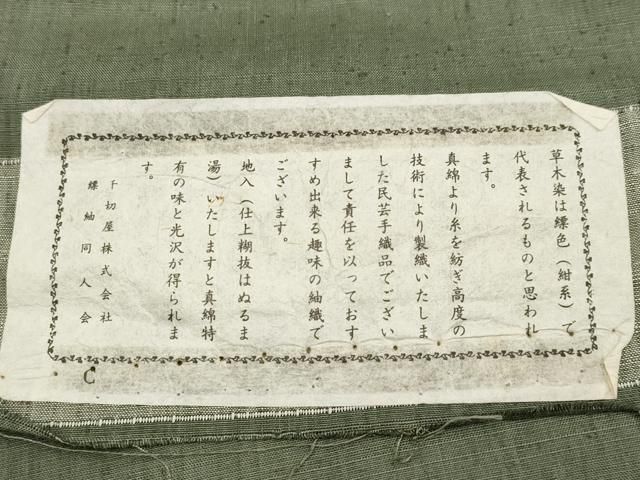 草木染は縹色（紺系）で
代表されるものと思われ
ます。
真綿より糸を紡ぎ高度の
技術により製織いたしま
した民芸手織品でござい
まして責任を以っておす
すめ出来る趣味の紬織で
ございます。
地入（仕上糊抜はぬるま
湯）いたしますと真綿特
有の味と光沢が得られま
す。
千切屋株式会社
縹紬同人会
C